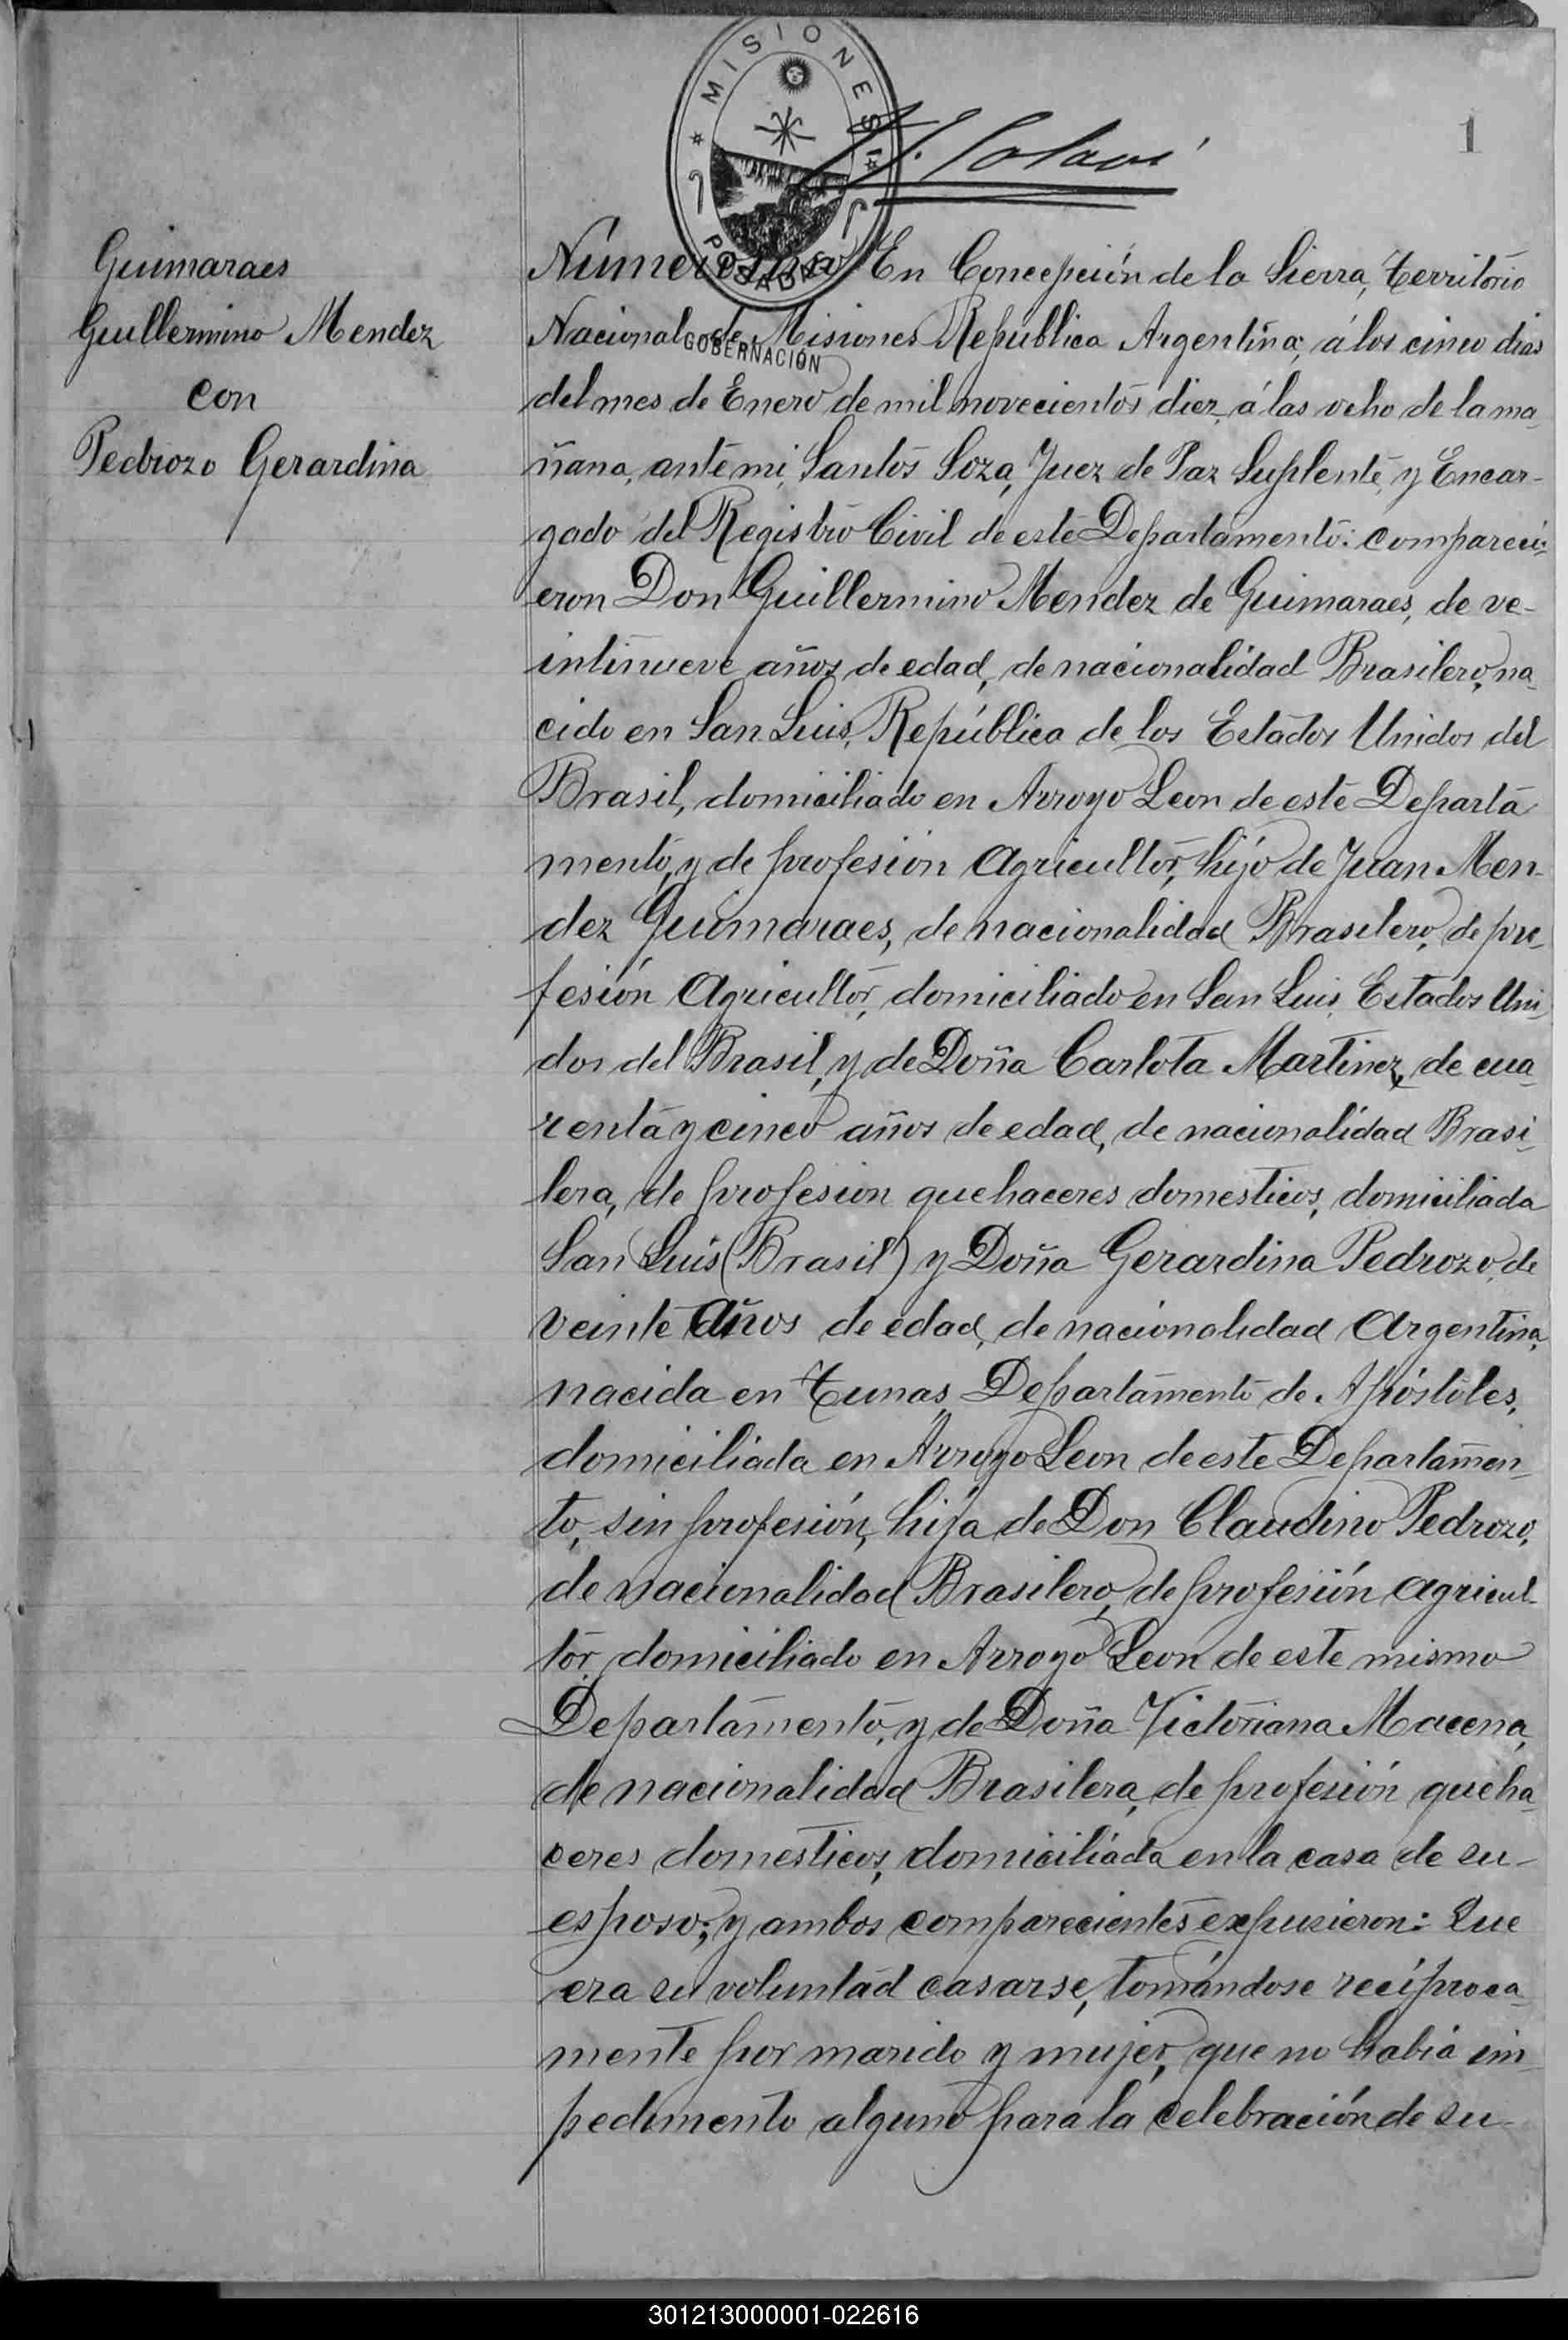 MISIONES
POSADAS
GOBERNACIÓN
1
Guimaraes
Guillermino Mendez
con
Pedrozo Gerardina
Número uno En Concepción de la Sierra, Territorio
Nacional de Misiones República Argentina, á los cinco dias
del mes de Enero de mil novecientos diez, á las ocho de la ma-
ñana, ante mi, Santos Soza, Juez de Paz Suplente, y Encar-
gado del Registro Civil de este Departamento: compareci-
eron Don Guillermino Mendez de Guimaraes, de ve-
intinueve años de edad, de nacionalidad Brasilero, na-
cido en San Luis, República de los Estados Unidos del
Brasil, domiciliado en Arroyo Leon de este Departa
mento, y de profesion Agricultor, hijo de Juan Men-
dez Guimaraes, de nacionalidad Brasilero, de pro-
fesión Agricultor, domiciliado en San Luis, Estados Uni-
dos del Brasil, y de Doña Carlota Martinez, de cua-
renta y cinco años de edad, de nacionalidad Brasi-
lera, de profesion quehaceres domesticos, domiciliada
San Luis (Brasil) y Doña Gerardina Pedrozo, de
veinte años de edad, de nacionalidad Argentina,
nacida en Tunas, Departamento de Apóstoles,
domiciliada en Arroyo Leon de este Departamen-
to, sin profesión, hija de Don Claudino Pedrozo,
de nacionalidad Brasilero, de profesión agricul-
tor, domiciliado en Arroyo Leon de este mismo
Departamento, y de Doña Victoriana Macena,
de nacionalidad Brasilera, de profesión queha-
ceres domesticos, domiciliada en la casa de su
esposo; y ambos comparecientes expusieron: Que
era su voluntad casarse, tomándose recíproca-
mente por marido y mujer, que no habia im-
pedimento alguno para la celebración de su
301213000001-022616